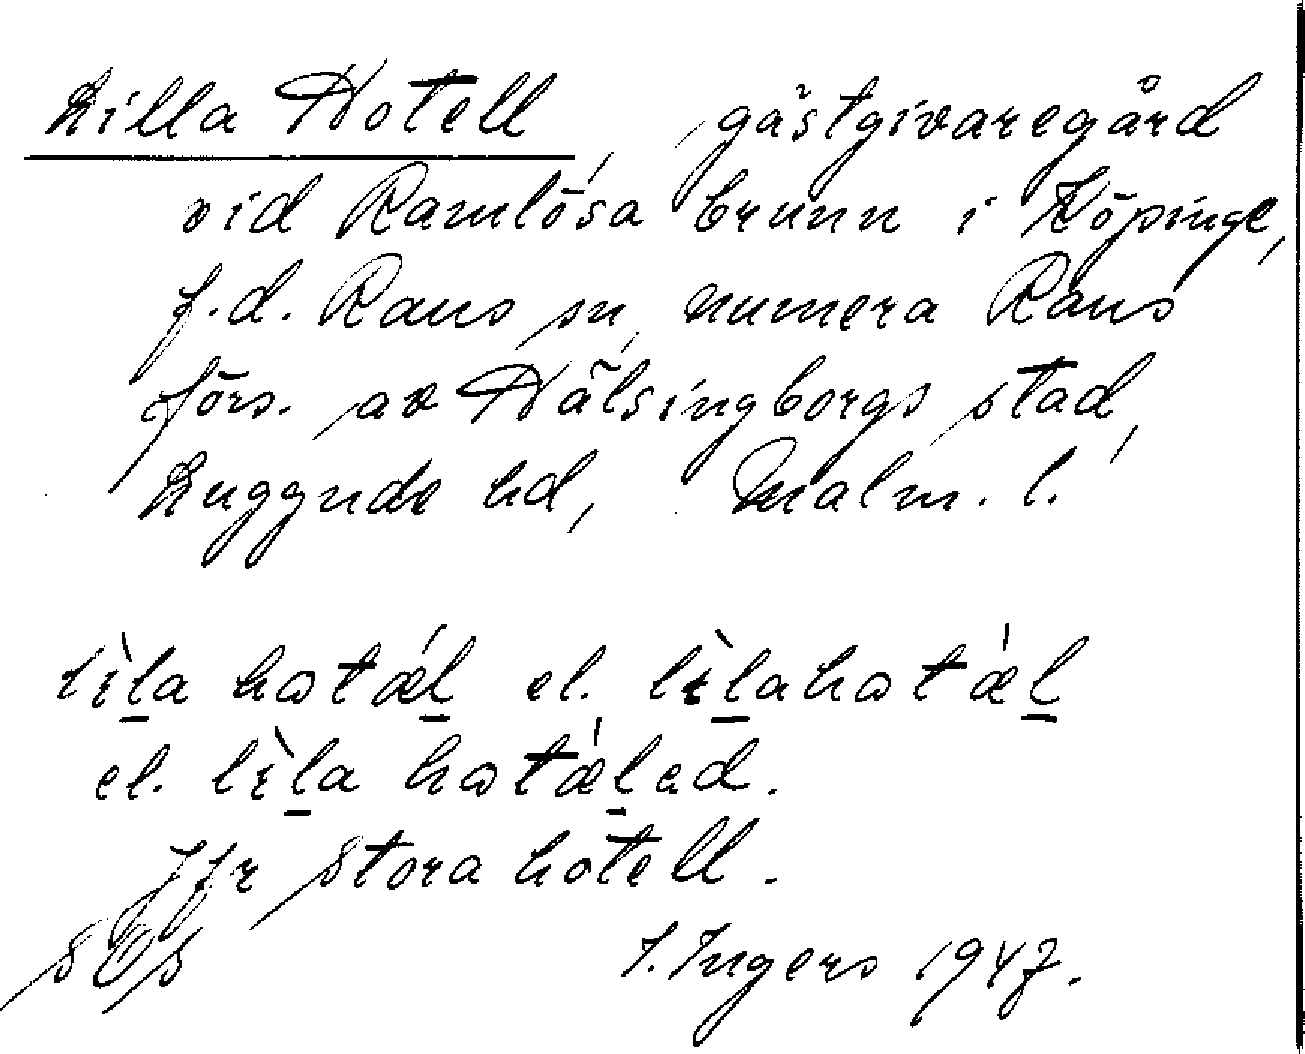 Lilla Hotell, gästgivaregård
vid Ramlösa brunn i Köpinge,
f.d. Raus sn, numera Raus
förs. av Hälsingborgs stad,
Luggude hd, Malm. l.
lìla hɷtǽl el. lìlahɷtæ̀l
el. lìla hɷtǽləd.
Jfr Stora hotell.
I. Ingers 1947.